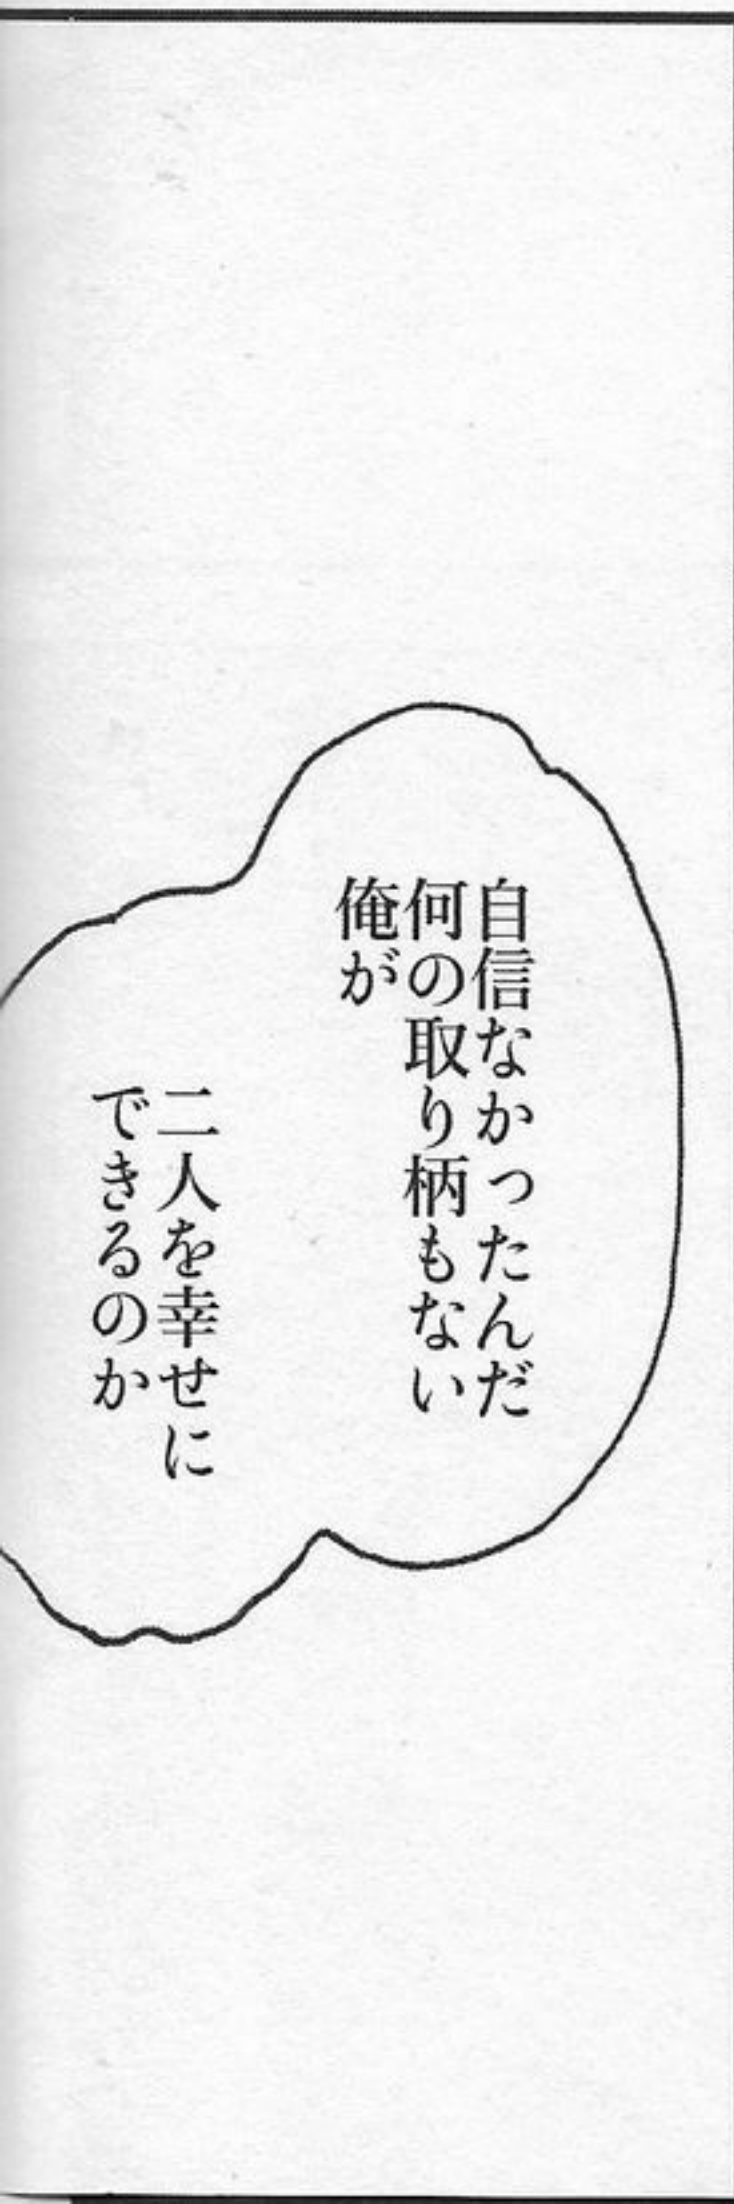 自信なかったんだ
何の取り柄もない
俺が
二人を幸せに
できるのか